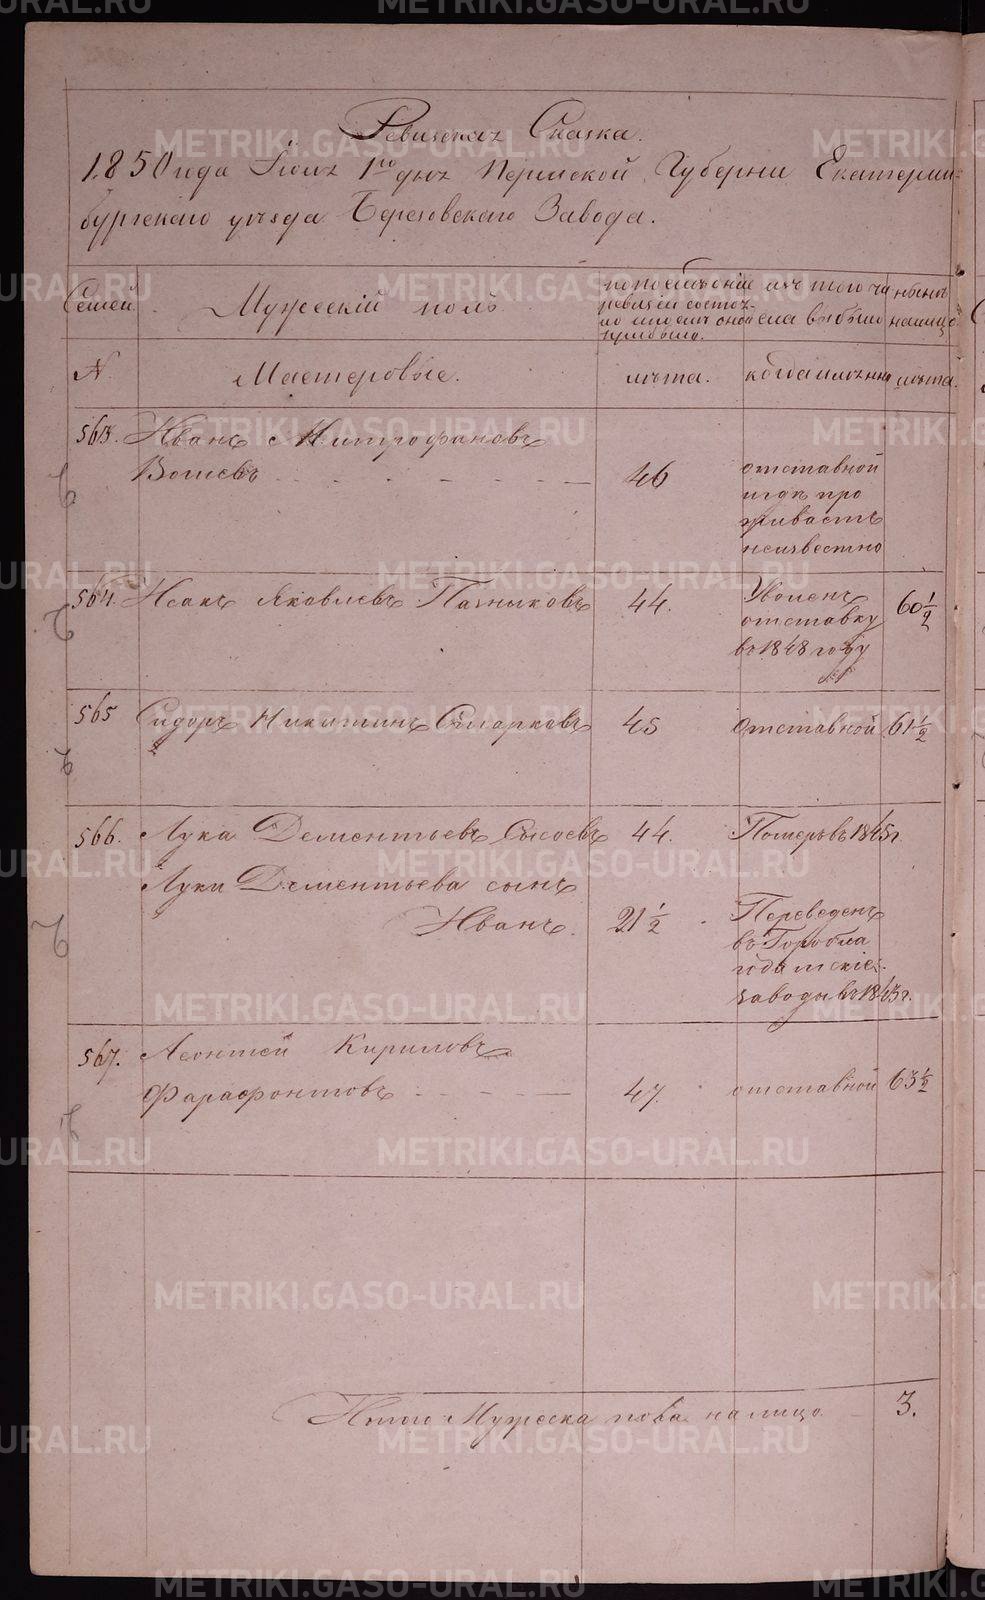 Ревизская Сказка.
1850 года Іюля 1го дня Пермской Губерни Екатерин-
бургскаго уезда Березовскаго Завода.
Семей Мужескій полъ по последней ревизіи состояло и после оной прибыло. изъ того числа выбыло ныне налицо
№ Мастеровые. лета. когда именно лета.
563. Иванъ Митрофановъ
46 отставной
где про
живаетъ
неизвестно
564. Исакъ Яковлевъ Пазниковъ 44. Уволенъ 60 1/2
отставку
въ 1848 году
565 Сидоръ Никитинъ Старковъ 45 Отставной 61 1/2
566. Лука Дементьевъ Сысоевъ 44. Померъ въ 1845 г.
Луки Дементьева сынъ
Иванъ. 21 1/2 Переведенъ
въ
заводы въ 1843 г.
567. Леонтей Кириловъ
Фарафонтовъ 47. отставной 63 1/2
Итого Мужеска пола налицо 3.
METRIKI.GASO-URAL.RU